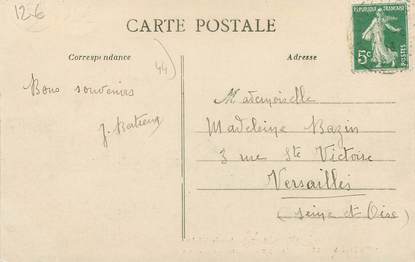 12-6
CARTE POSTALE
RÉPUBLIQUE FRANÇAISE
5c
Correspondance
Adresse
44)
Bons souvenirs
J.
Mademoiselle
Madeleine Bazin
3 rue Ste Victoire
Versailles
(Seine et Oise)